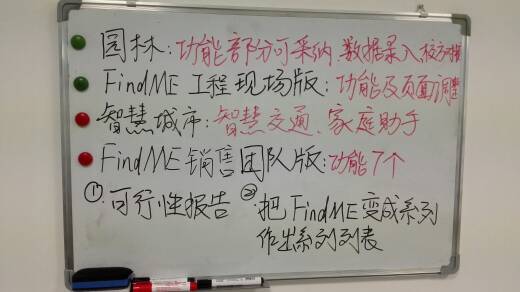 园林:功能部分可采纳 数据录入校对
FindME 工程现场版:功能及页面调整
智慧城市:智慧交通、家庭助手
FindME 销售团队版:功能7个
①.可行性报告 ②.把FindME变成系列
作出系列列表